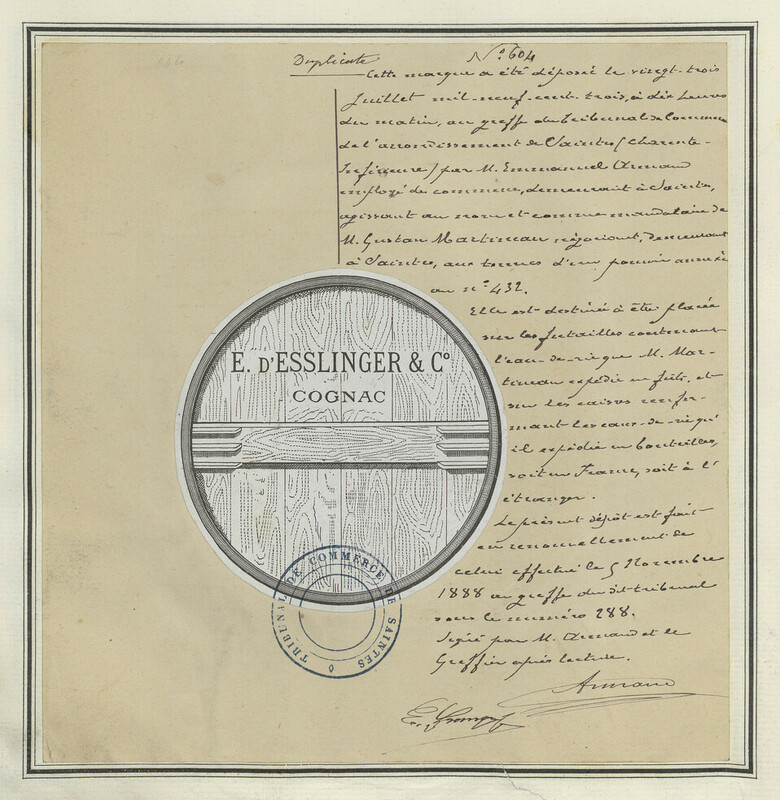 Duplicata
N° 604
Cette marque a été déposé le vingt-trois
Juillet mil-neuf-cent-trois, à dix heures
du matin, au greffe du tribunal de Commerce
de l'arrondissement de Saintes (Charente-
Inférieure) par M. Emmanuel Armand
employé de commerce, demeurant à Saintes,
agissant au nom et comme mandataire de
M. Gustau Martineau négociant, demeurant
à Saintes, aux termes d'un pouvoir annexé
au n° 432.
Elle est destinée à être placée
sur les futailles contenant
l'eau-de-vie que M. Mar-
tineau expédie en fûts, et
sur les caisses renfer-
mant les eaux-de-vie qu'
il expédie en bouteilles,
soit en France, soit à l'
étranger.
Le présent dépôt est fait
en renouvellement de
celui effectué le 5 Novembre
1888 au greffe du dit tribunal
sous le numéro 288.
Signé par M. Armand et le
Greffier après lecture.
Armand
E. D'ESSLINGER & C°
COGNAC
TRIBUNAL DE COMMERCE DE SAINTES